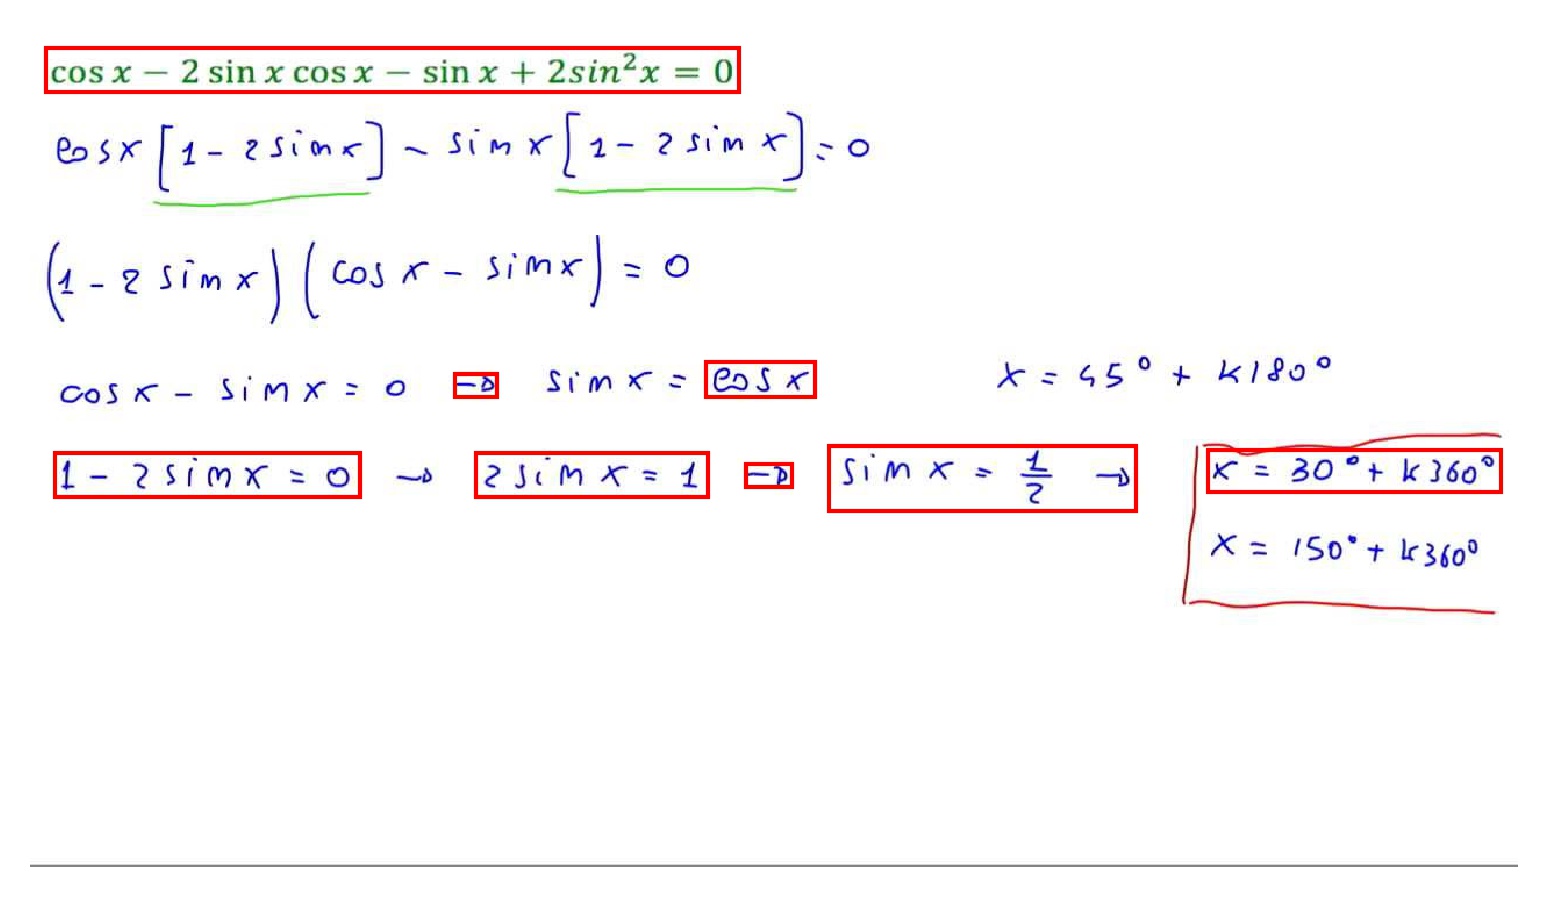 cos x − 2 sin x cos x − sin x + 2sin²x = 0
cosx [1 - 2 sinx] - sinx [1 - 2 sinx] = 0
(1 - 2 sinx) (cosx - sinx) = 0
cosx - sinx = 0 → sinx = cosx x = 45° + k180°
1 - 2 sinx = 0 → 2 sinx = 1 → sinx = 1/2 → x = 30° + k360°
x = 150° + k360°